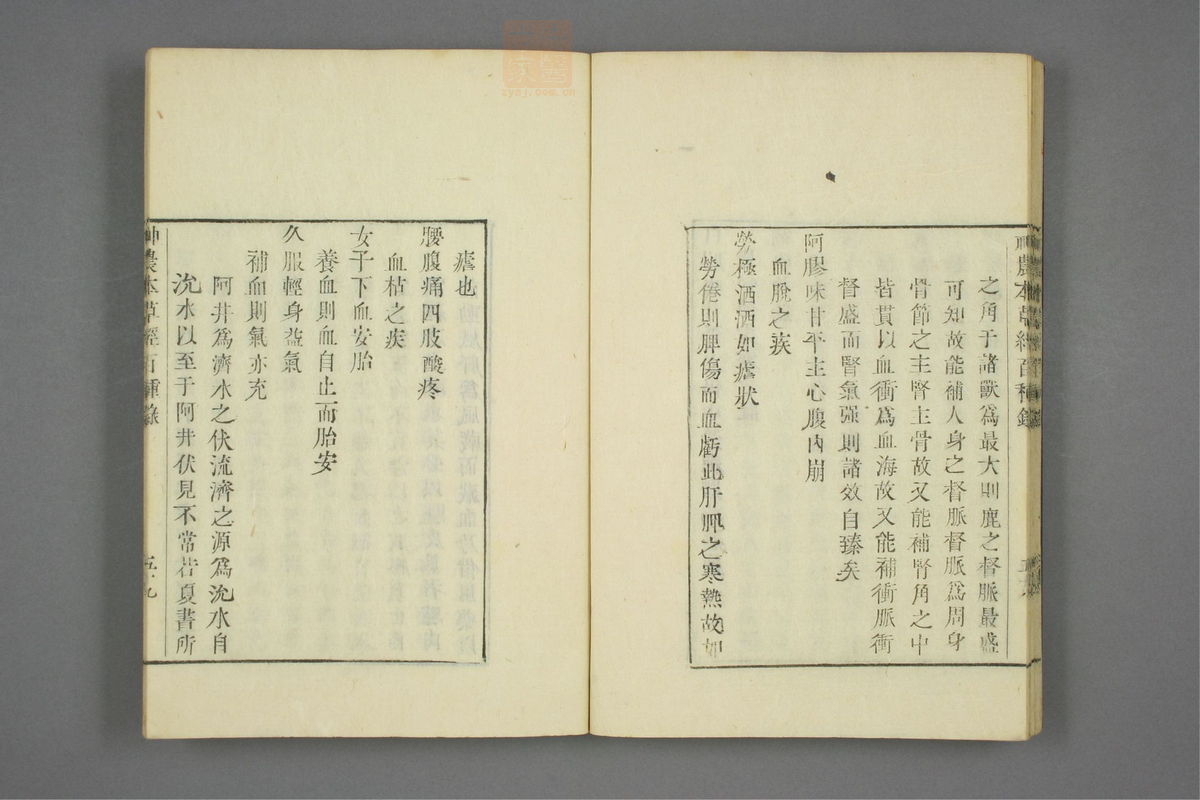 之角于諸獸爲最大則鹿之督脈最盛
可知故能補人身之督脈督脈爲周身
骨節之主腎主骨故又能補腎角之中
皆貫以血衝爲血海故又能補衝脈衝
督盛而腎氣强則諸效自臻矣
阿膠味甘平主心腹内崩
血脫之疾
勞極洒洒如瘧狀
勞倦則脾傷而血虧此肝脾之寒熱故如
瘧也
腰腹痛四肢酸疼
血枯之疾
女子下血安胎
養血則血自止而胎安
久服輕身益氣
補血則氣亦充
阿井爲濟水之伏流濟之源爲沇水自
沇水以至于阿井伏見不常若夏書所
神農本草經百種錄
zysj.com.cn